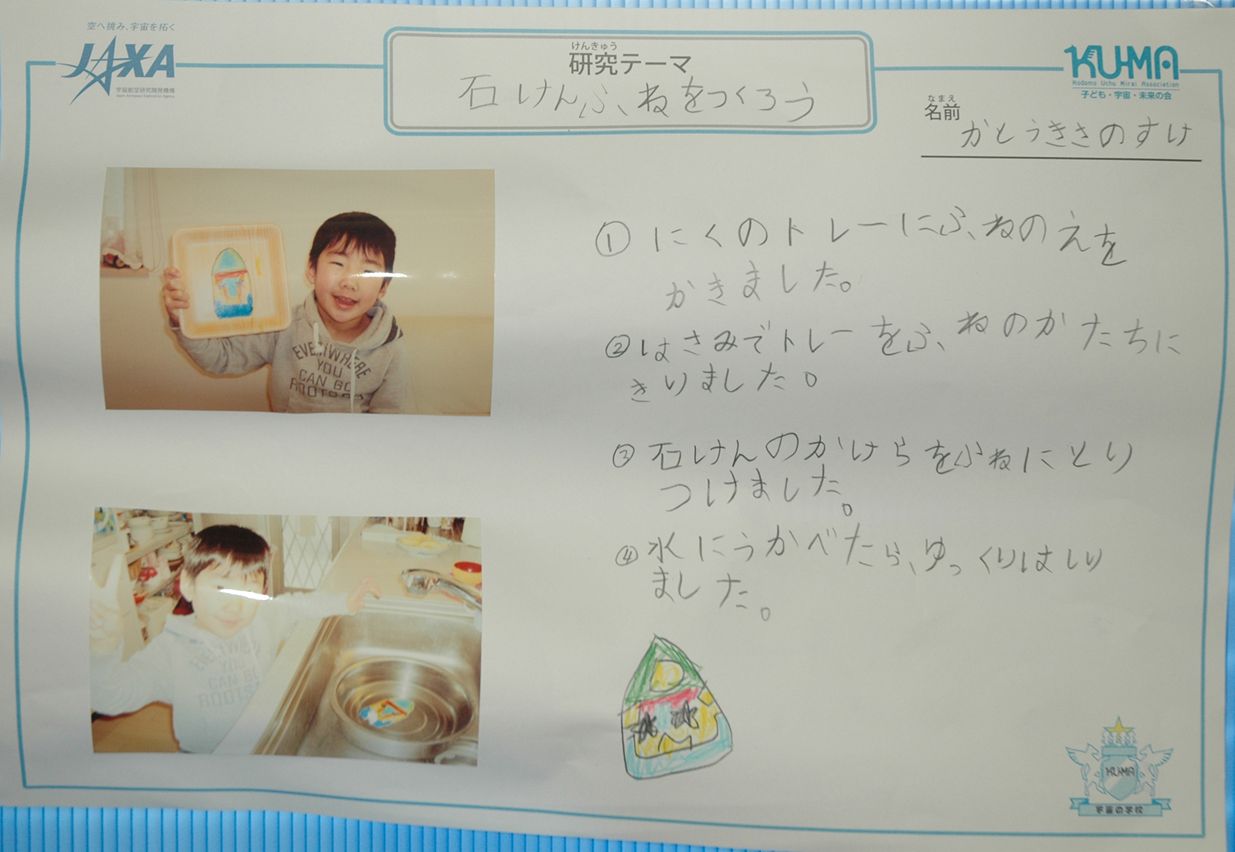 空へ挑み、宇宙を拓く
JAXA
宇宙航空研究開発機構
Japan Aerospace Exploration Agency
けんきゅう
研究テーマ
石けんふねをつくろう
KU-MA
Kodomo Uchu Mirai Association
子ども・宇宙・未来の会
なまえ
名前
かとうききのすけ
EVERYWHERE
YOU
CAN BE
①にくのトレーにふねのえを
かきました。
②はさみでトレーをふねのかたちに
きりました。
③石けんのかけらをふねにとり
つけました。
④水にうかべたら、ゆっくりはしり
ました。
YOU
CAN BE
KU-MA
宇宙の学校